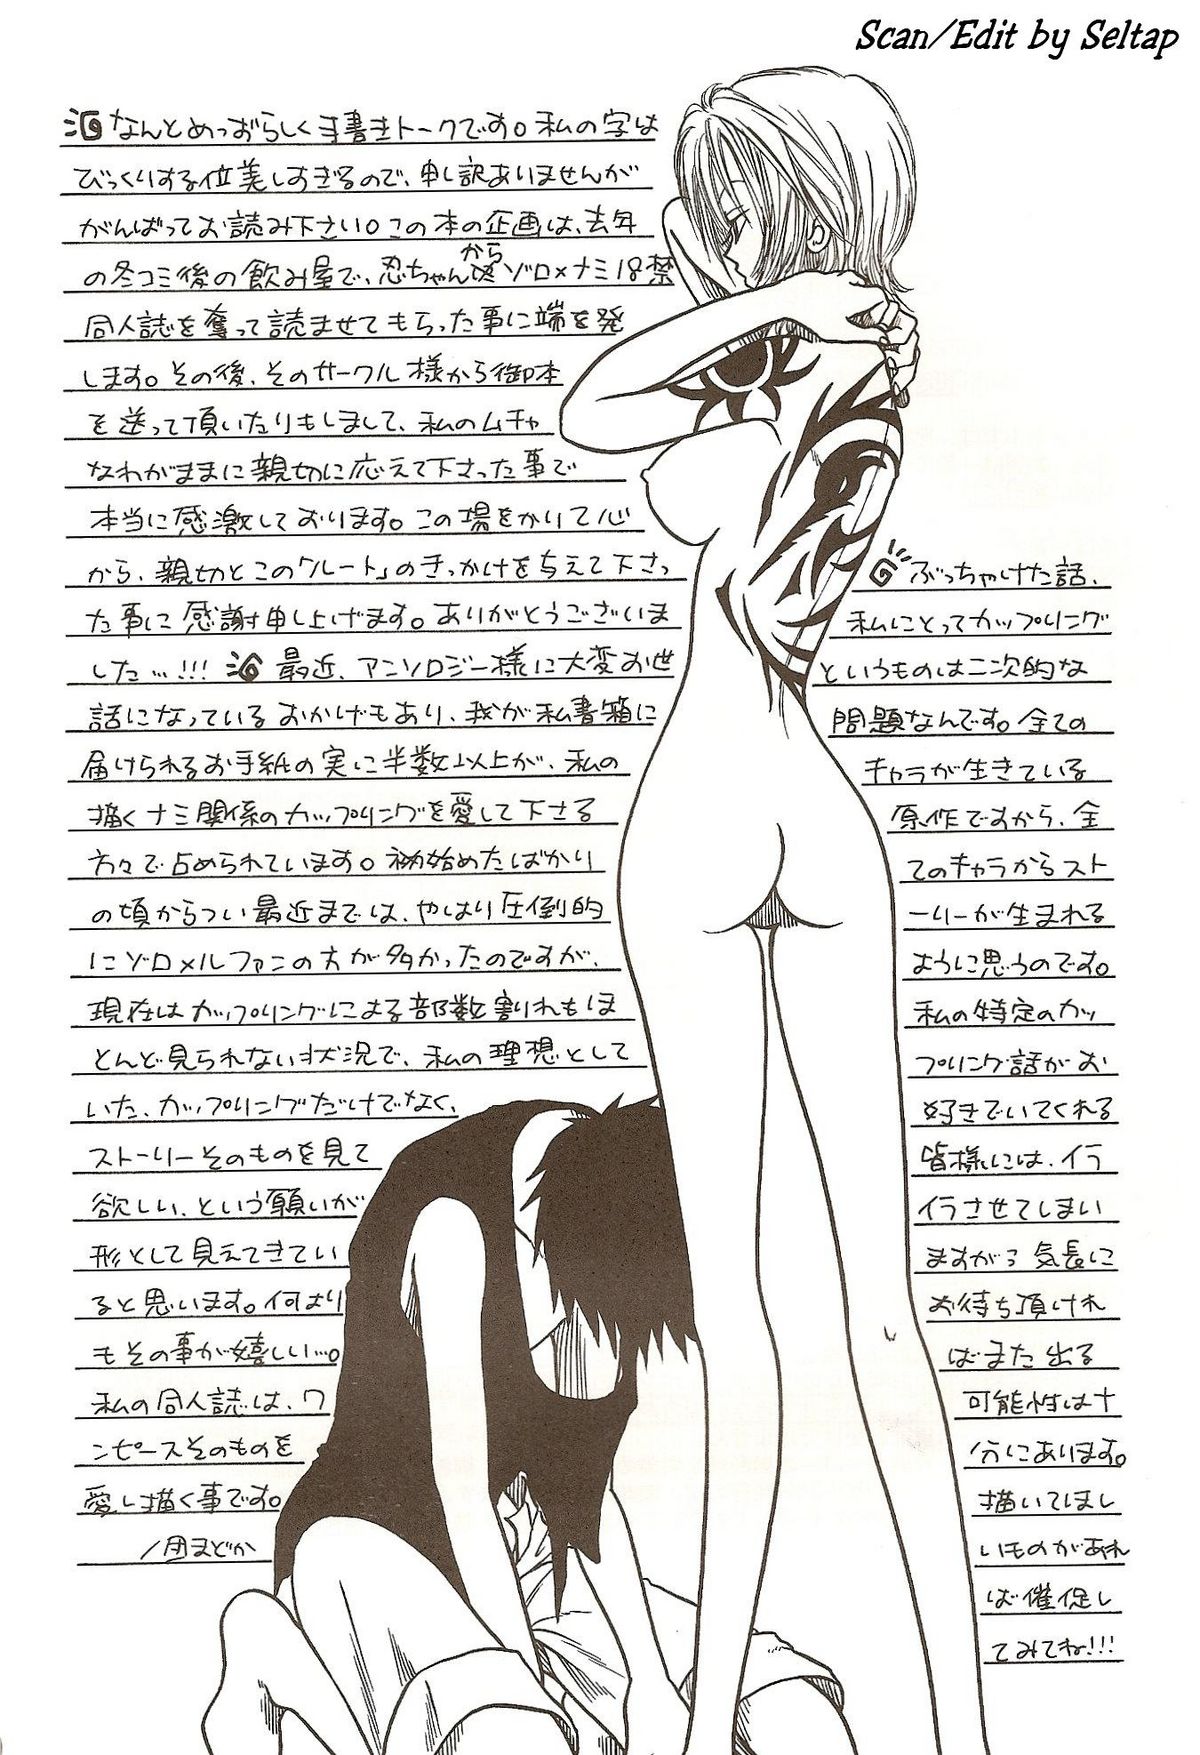 Scan/Edit by Seltap
なんとめっずらしく手書きトークです。私の字は
びっくりする位美しすぎるので、申し訳ありませんが
がんばってお読み下さい。この本の企画は、去年
の冬コミ後の飲み屋で、忍ちゃんからゾロ×ナミ18禁
同人誌を奪って読ませてもらった事に端を発
します。その後、そのサークル様から御本
を送って頂いたりもしまして、私のムチャ
なわがままに親切に応えて下さった事で
本当に感激しております。この場をかりて心
から、親切とこの「ルート」のきっかけを与えて下さっ
た事に感謝申し上げます。ありがとうございま
した…!!! 最近、アンソロジー様に大変お世
話になっているおかげもあり、我が私書箱に
届けられるお手紙の実に半数以上が、私の
描くナミ関係のカップリングを愛して下さる
方々で占められています。初始めたばかり
の頃からつい最近までは、やはり圧倒的
にゾロ×ルファンの方が多かったのですが、
現在はカップリングによる部数割れもほ
とんど見られない状況で、私の理想として
いた、カップリングだけでなく、
ストーリーそのものを見て
欲しい、という願いが
形として見えてきてい
ると思います。何より
もその事が嬉しい…。
私の同人誌は、ワ
ンピースそのものを
愛し描く事です。
まどか
ぶっちゃけた話、
私にとってカップリング
というものは二次的な
問題なんです。全ての
キャラが生きている
原作ですから、全
てのキャラからスト
ーリーが生まれる
ように思うのです。
私の特定のカッ
プリング話がお
好きでいてくれる
皆様には、イラ
イラさせてしまい
ますが、気長に
お待ち頂けれ
ばまた出る
可能性は十
分にあります。
描いてほし
いものがあれ
ば催促し
てみてね!!!